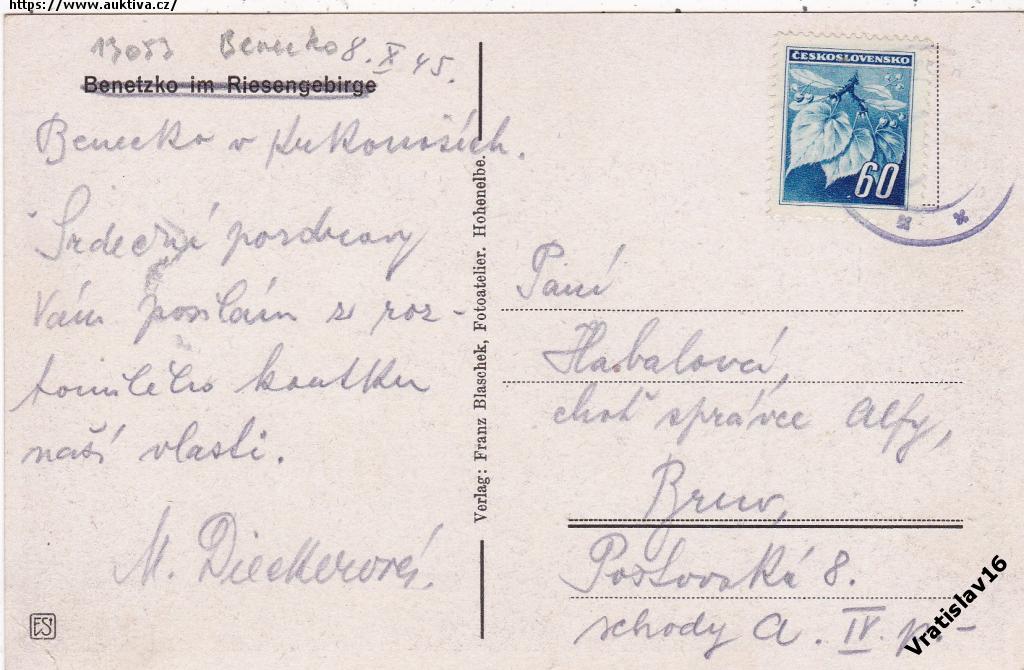 https://www.auktiva.cz/
13053 Benecko 8. X 45.
Benetzko im Riesengebirge
Benecko v Krkonoších.
Srdečné pozdravy
Vám posílám z roz-
tomilého koutku
naší vlasti.
M. Dieckerová.
Verlag: Franz Blaschek, Fotoatelier. Hohenelbe.
ČESKOSLOVENSKO
60
Paní
Habalová,
choť správce Alfy,
Brno,
Poštovská 8.
schody A. IV. p.-
Vratislav16